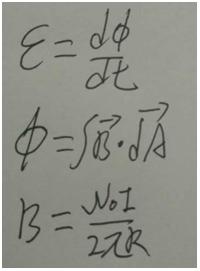 ε = dϕ/dt
ϕ = ∫B⃗·dA⃗
B = μ₀I/2πR